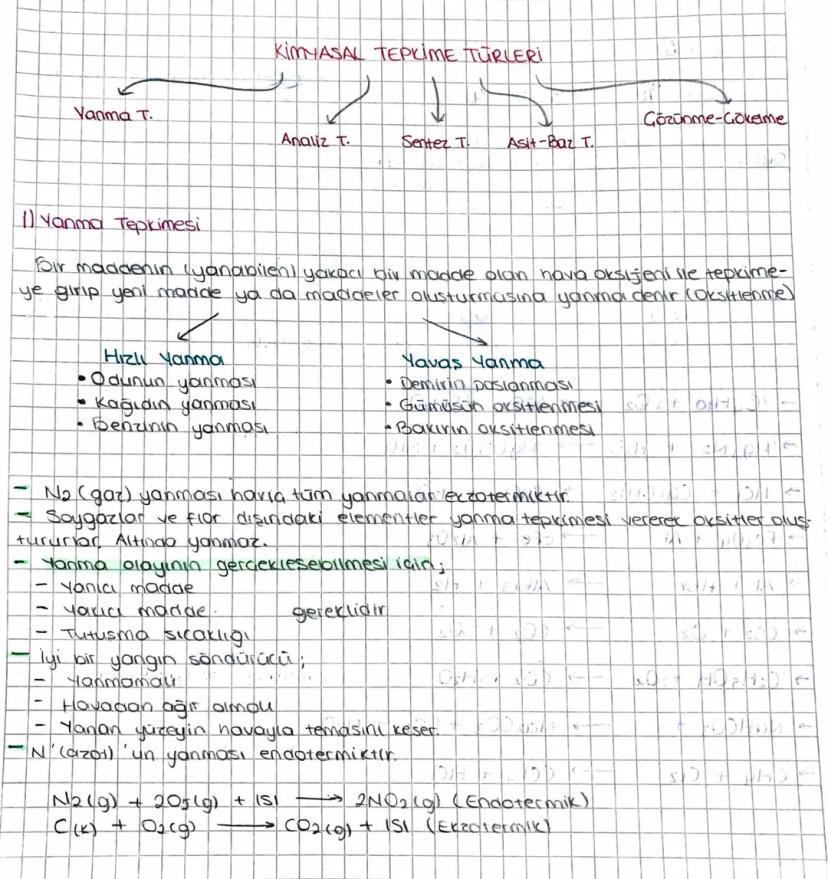 KİMYASAL TEPKİME TÜRLERİ
Yanma T.
Analiz T.
Sentez T.
Asit-Baz T.
Çözünme-Çökelme
1) Yanma Tepkimesi
Bir maddenin (yanabilen) yakıcı bir madde olan hava oksijeni ile tepkime-
ye girip yeni madde ya da maddeler oluşturmasına yanma denir (Oksitlenme)
Hızlı Yanma
• Odunun yanması
• Kağıdın yanması
• Benzinin yanması
Yavaş Yanma
• Demirin paslanması
• Gümüşün oksitlenmesi
• Bakırın oksitlenmesi
- N2 (gaz) yanması hariç tüm yanmalar ekzotermiktir.
- Soygazlar ve flor dışındaki elementler yanma tepkimesi vererek oksitler oluş-
tururlar. Altında yanmaz.
- Yanma olayının gerçekleşebilmesi için;
- Yanıcı madde
- Yakıcı madde gereklidir
- Tutuşma sıcaklığı
- İyi bir yangın söndürücü;
- Yanmamalı
- Havadan ağır olmalı
- Yanan yüzeyin havayla temasını keser.
- N'(azot)'un yanması endotermiktir.
N2(g) + 2O2(g) + ISI → 2NO2(g) (Endotermik)
C(k) + O2(g) → CO2(g) + ISI (Ekzotermik)